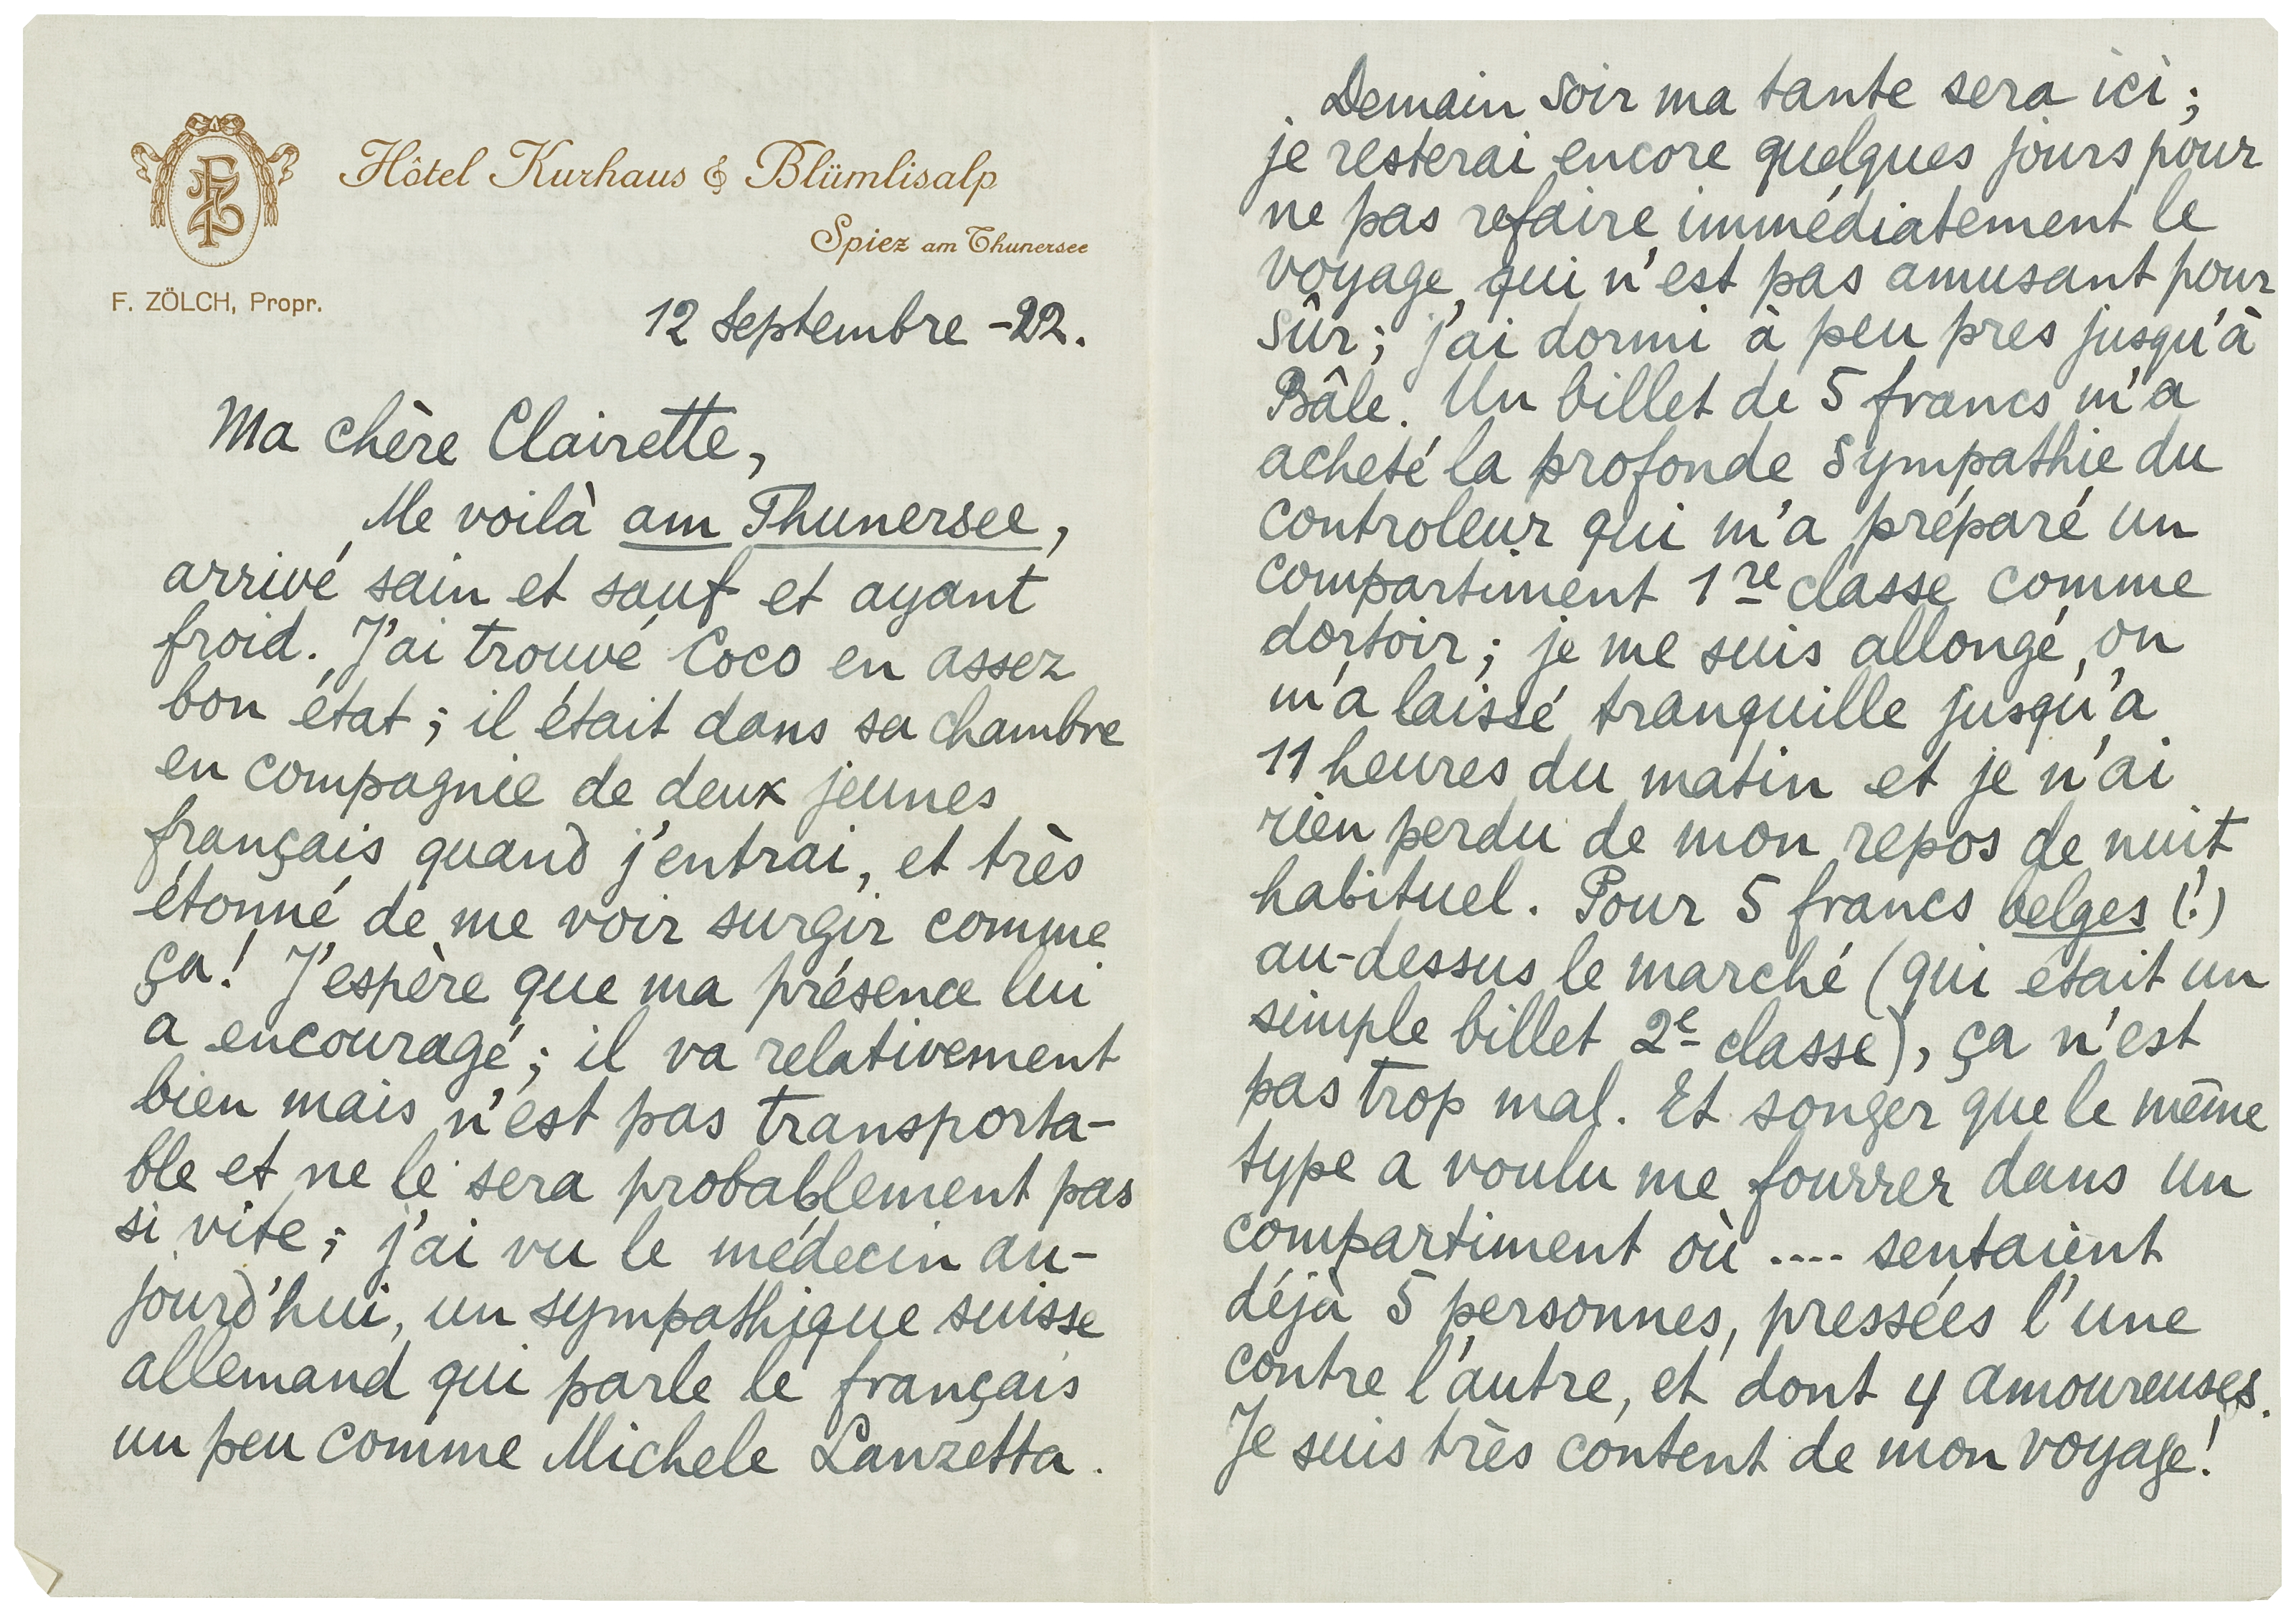 FZ
Hôtel Kurhaus & Blümlisalp
Spiez am Thunersee
F. ZÖLCH, Propr.
12 septembre -22.
Ma chère Clairette,
Me voilà am Thunersee,
arrivé sain et sauf et ayant
froid. J'ai trouvé Coco en assez
bon état; il était dans sa chambre
en compagnie de deux jeunes
français quand j'entrai, et très
étonné de me voir surgir comme
ça! J'espère que ma présence lui
a encouragé; il va relativement
bien mais n'est pas transporta-
ble et ne le sera probablement pas
si vite; j'ai vu le médecin au-
jourd'hui, un sympathique suisse
allemand qui parle le français
un peu comme Michele Lanzetta.
Demain soir ma tante sera ici;
je resterai encore quelques jours pour
ne pas refaire immédiatement le
voyage, qui n'est pas amusant pour
sûr; j'ai dormi à peu pres jusqu'à
Bâle. Un billet de 5 francs m'a
acheté la profonde sympathie du
controleur qui m'a préparé un
compartiment 1re classe comme
dortoir; je me suis allongé, on
m'a laissé tranquille jusqu'a
11 heures du matin et je n'ai
rien perdu de mon repos de nuit
habituel. Pour 5 francs belges (!)
au-dessus le marché (qui était un
simple billet 2e classe), ça n'est
pas trop mal. Et songer que le même
type a voulu me fourrer dans un
compartiment où .... sentaient
déjà 5 personnes, pressées l'une
contre l'autre, et dont 4 amoureuses.
Je suis très content de mon voyage!